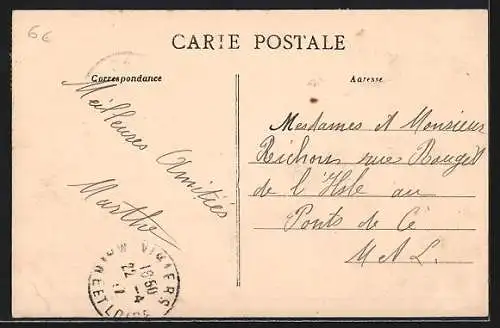 6€
CARTE POSTALE
Correspondance
Adresse
Meilleures Amitiés
Marthe
Mesdames et Monsieur
Richou rue Rouget
de l'Isle au
Ponts de Cé
M et L.
VIHIERS
18 50
22 -4
ET LOIRE